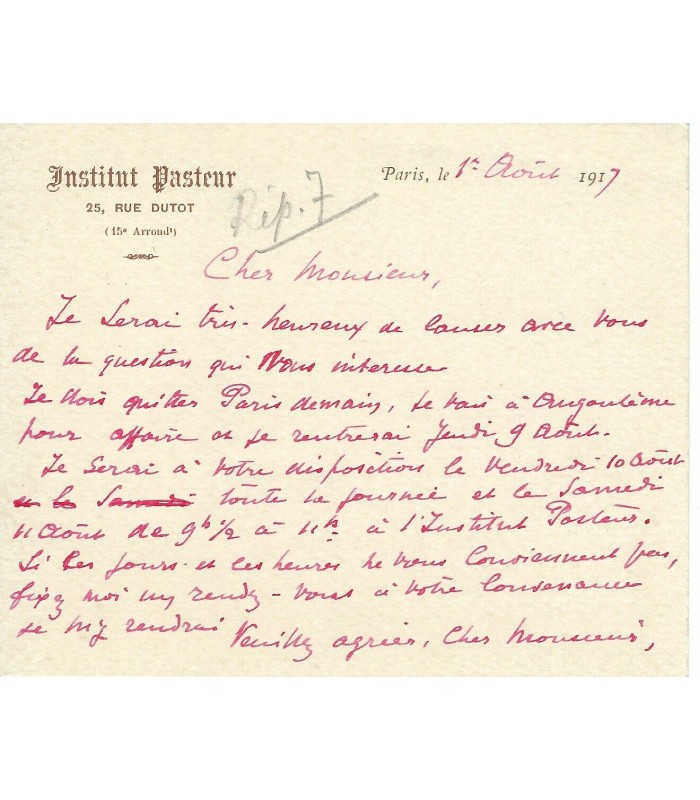 Institut Pasteur
25, RUE DUTOT
(15e Arrondt)
Paris, le 1er Août 1917
Rép. 7
Cher Monsieur,
Je serai très-heureux de causer avec vous
de la question qui vous interesse
Je dois quitter Paris demain, je vais à Angoulème
pour affaire et je rentrerai Jeudi 9 Août.
Je serai à votre disposition le Vendredi 10 Août
et le Samedi toute la journée et le Samedi
11 Août de 9h 1/2 à 11h à l'Institut Pasteur.
Si ces jours et ces heures ne vous conviennent pas,
fixez moi un rendez-vous à votre convenance
je m'y rendrai Veuillez agréer, Cher Monsieur,